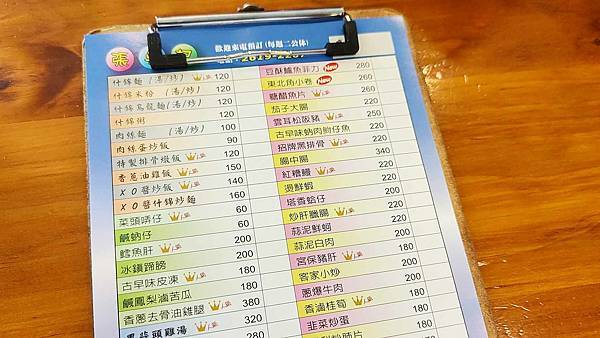 張
歡迎來電預訂(每週二公休)
什錦麵 (湯/炒) 120
什錦米粉 (湯/炒) 120
什錦烏龍麵 (湯/炒) 120
什錦粥 120
肉絲麵 (湯/炒) 100
肉絲蛋炒飯 90
特製排骨燴飯 120
香蔥油雞飯 150
XO醬炒飯 140
XO醬什錦炒麵 160
菜頭 仔 60
鹹蚋仔 60
鱈魚肝 200
冰鎮蹄膀 200
古早味皮凍 180
鹹鳳梨滷苦瓜 180
香蔥去骨油雞腿 380
黑蒜頭雞湯 320
280
豆酥鱸魚菲力 New 280
東北角小卷 New 260
糖醋魚片 260
茄子大腸 220
雲耳松阪豬 250
古早味蚋肉吻仔魚 220
招牌黑排骨 220
腸中腸 340
紅糟鰻 220
燙鮮蝦 220
塔香蛤仔 220
炒肝臘腸 220
蒜泥鮮蚵 220
蒜泥白肉 200
宮保豬肝 180
客家小炒 200
蔥爆牛肉 200
香滷桂筍 200
韭菜炒蛋 180